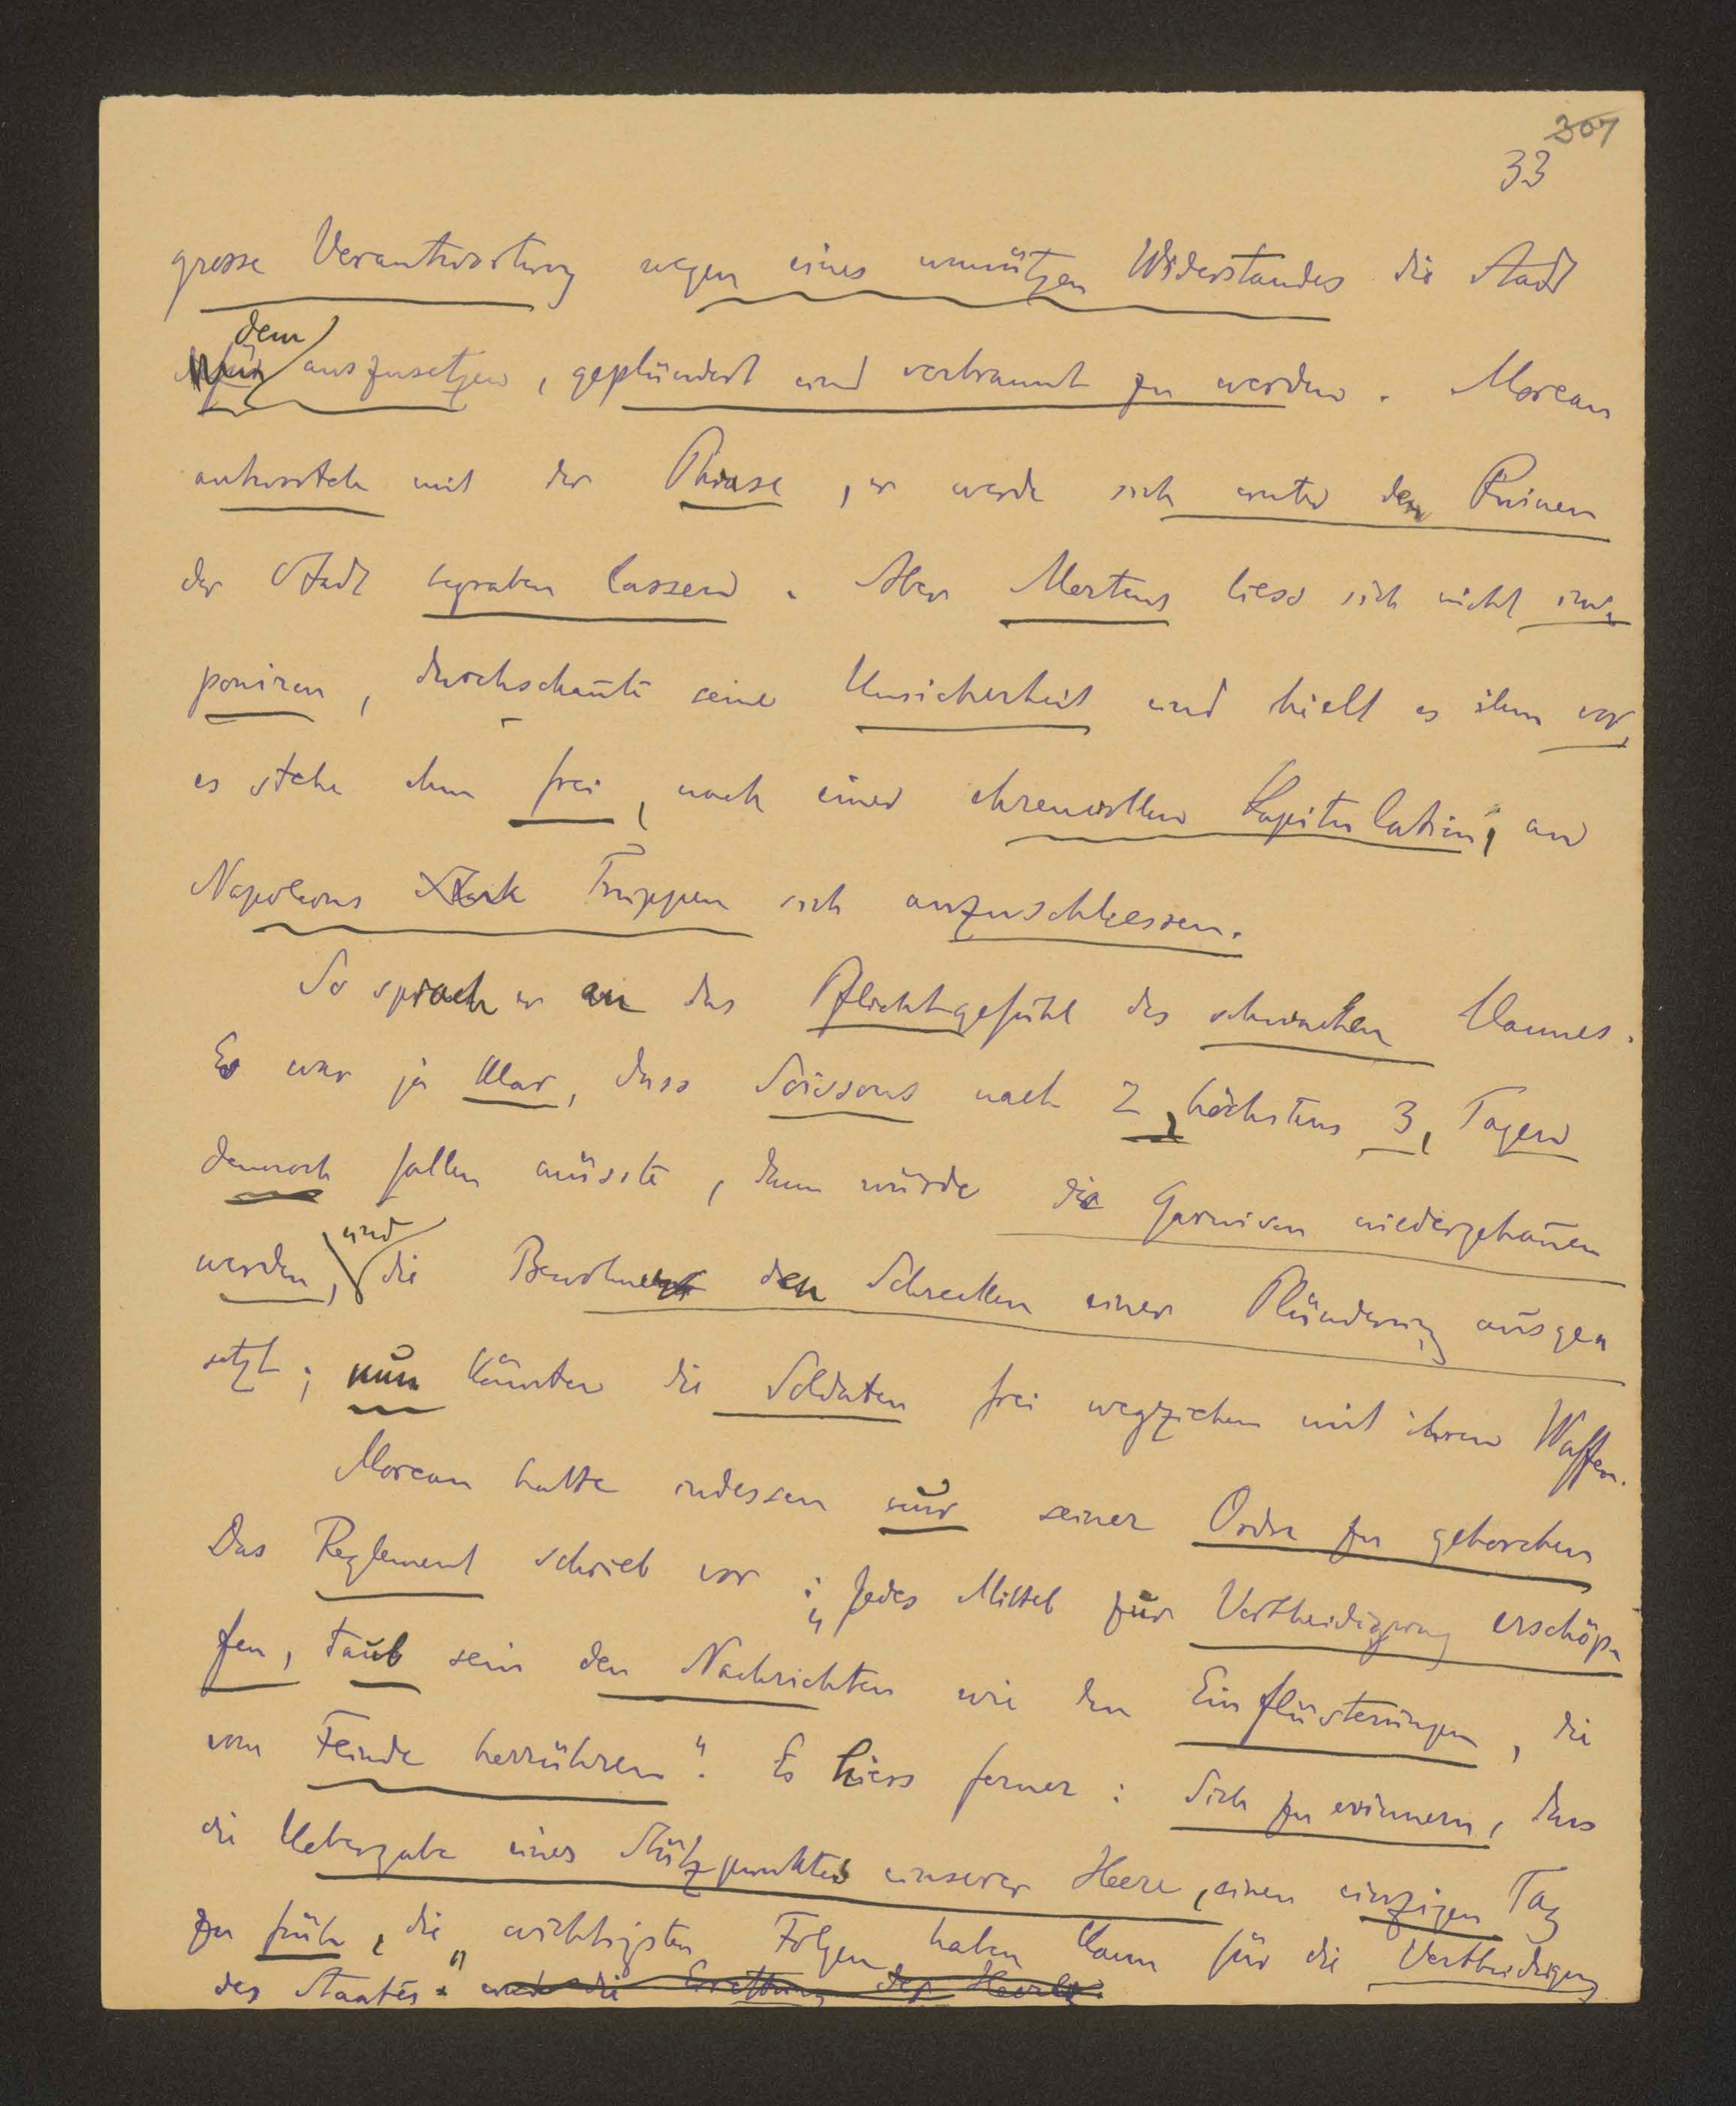 307
33
grosse Verantwortung wegen eines unnützen Widerstandes die Stadt
dem
auszusetzen, geplündert und verbrannt zu werden. Moreau
antwortete mit der Phrase, er werde sich unter den Ruinen
der Stadt begraben lassen. Aber Mertens liess sich nicht im-
poniren, durchschaute seine Unsicherheit und hielt es ihm vor,
es stehe ihm frei, nach einer ehrenvollen Kapitulation, an
Napoleons Truppen sich anzuschliessen.
So sprach er an das Pflichtgefühl des schwachen Mannes.
Es war ja klar, dass Soissons nach 2, höchstens 3, Tagen
dennoch fallen müsste, dann würde die Garnison niedergehauen
und
werden, die Bewohner den Schrecken einer Plünderung ausge-
setzt; nun könnten die Soldaten frei wegziehen mit ihren Waffen.
Moreau hatte indessen nur seiner Ordre zu gehorchen
Das Reglement schrieb vor: „Jedes Mittel zur Vertheidigung erschöp-
fen, taub sein den Nachrichten wie den Einflüsterungen, die
vom Feinde herrühren". Es hiess ferner: Sich zu erinnern, dass
die Uebergabe eines Stützpunktes unserer Heere, einen einzigen Tag
zu früh, die wichtigsten Folgen haben kann für die Vertheidigung
des Staates" und die Errettung des Heeres.